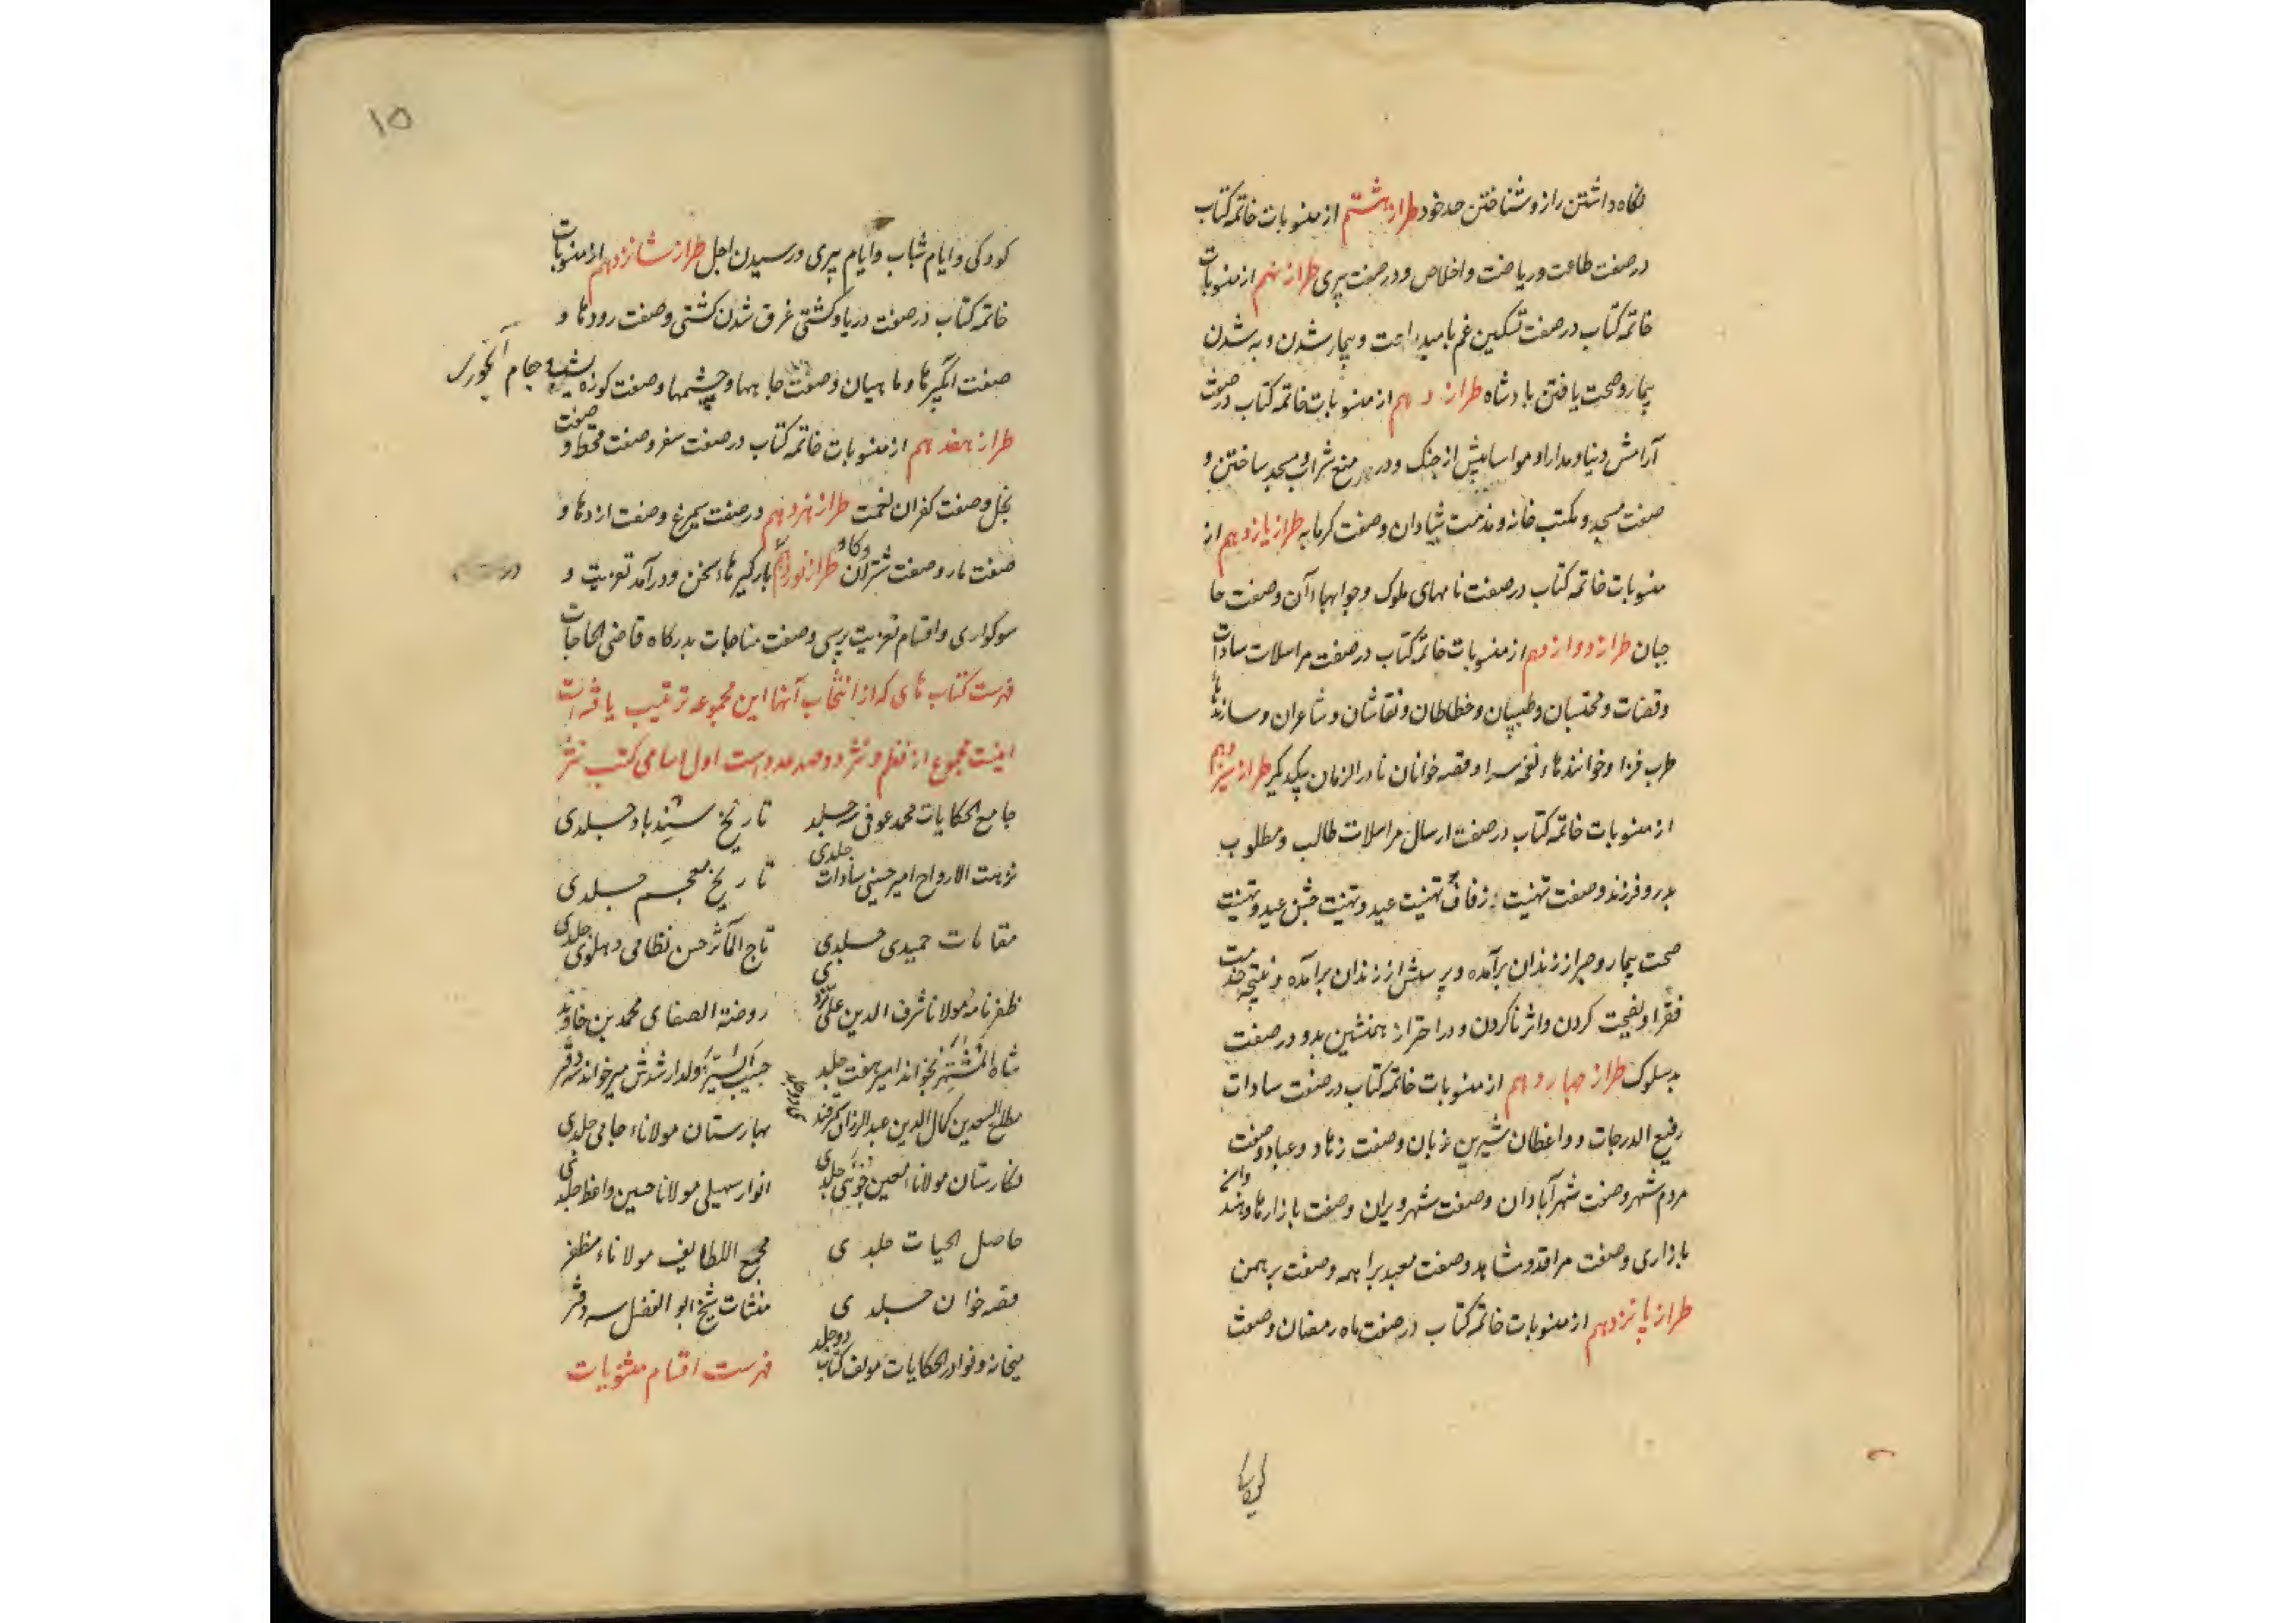 نگاه داشتن راز و شناختن حد خود طراز هشتم از منسوبات خاتمه کتاب
در صفت طاعت و ریاضت و اخلاص و در صفت پیری طراز نهم از منسوبات
خاتمه کتاب در صفت تسکین غم بامید راحت و بیمار شدن و به شدن
بیمار و صحت یافتن بادشاه طراز دهم از منسوبات خاتمه کتاب در صفت
آرامش دنیا و مدارا و مواسا پیش از جنک و در منع شراب و مسجد ساختن و
صفت مسجد و مکتب خانه و مذمت شیادان وصفت کرمابه طراز یازدهم از
منسوبات خاتمه کتاب در صفت نامهای ملوک و جوابهاء آن وصفت حا
جبان طراز دوازدهم از منسوبات خاتمه کتاب در صفت مراسلات سادات
وقضات و محتسبان وطبیبان وخطاطان ونقاشان وشاعران وسازندها
طرب فزا وخوانندهاء نغمه سرا وقصه خوانان نادر الزمان بیکدیکر طراز سیزدهم
از منسوبات خاتمه کتاب در صفت ارسال مراسلات طالب ومطلوب
پدر و فرزند وصفت تهنیت زفاف و تهنیت عید و تهنیت جشن عید و تهنیت
صحت بیمار و صبر از زندان برآمده و پرسش از زندان برآمده و نتیجه خدمت
فقرا و نصیحت کردن و اثر ناکردن و در احتراز همنشین بد و در صفت
بدسلوک طراز چهاردهم از منسوبات خاتمه کتاب در صفت سادات
رفیع الدرجات و واعظان شیرین زبان وصفت زهاد و عباد وصفت
مردم شهر وصفت شهر آبادان وصفت شهر ویران وصفت بازارها و
بازاری وصفت مراقد و مشاهد وصفت معبد براهمه وصفت برهمن
طراز پانزدهم از منسوبات خاتمه کتاب در صفت ماه رمضان وصفت
کودکی
۱۵
کودکی و ایام شباب و ایام پیری و رسیدن اجل طراز شانزدهم از منسوبات
خاتمه کتاب در صفت دریا و کشتی غرق شدن کشتی وصفت رودها و
صفت آبگیرها و ماهیان وصفت چاهها وچشمها وصفت کوزه و جام آبخوری
طراز هفدهم از منسوبات خاتمه کتاب در صفت سفر وصفت قحط و صفت
بخل وصفت کفران نعمت طراز هژدهم در صفت سیمرغ وصفت اژدها و
صفت مار وصفت شتران و کاو طراز نوزدهم بارگیرهاء سخن و درآمد تعزیت و
سوکواری و اقسام تعزیت پرسی وصفت مناجات بدرکاه قاضی الحاجات
فهرست کتاب های که از انتخاب آنها این مجموعه ترتیب یافته است
اینست مجموع از نظم و نثر دوصد عدد است اول اسامی کتب نثر
جامع الحکایات محمد عوفی سه جلد تاریخ سندباد جلدی
نزهت الارواح امیر حسینی سادات جلدی تاریخ معجم جلدی
مقامات حمیدی جلدی تاج المآثر حسن نظامی دهلوی جلدی
ظفرنامه مولانا شرف الدین علی یزدی روضة الصفای محمد بن خاوند
شاه المشتهر بخواند امیر هفت جلد حبیب السیر ولد ارشدش میرخواند سه دفتر
مطلع السعدین کمال الدین عبدالرزاق سمرقندی دو جلد بهارستان مولاناء جامی جلدی
نکارستان مولانا معین جوینی جلدی انوار سهیلی مولانا حسین واعظ جلدی
حاصل الحیات جلدی مجمع اللطایف مولاناء مظفر
قصه خوان جلدی منشات شیخ ابو الفضل سه دفتر
میخانه ونوادر الحکایات مولف کتاب دو جلد فهرست اقسام مثنویات